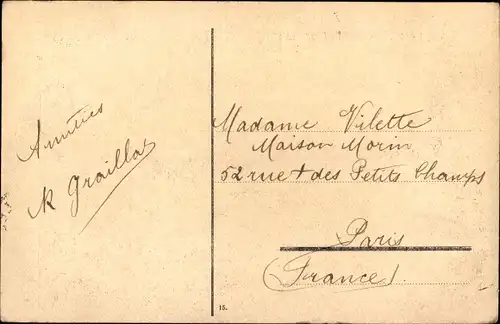 Amitiés
K Graillat
Madame Vilette
Maison Morin
52 rue + des Petits Champs
Paris
(France)
15.